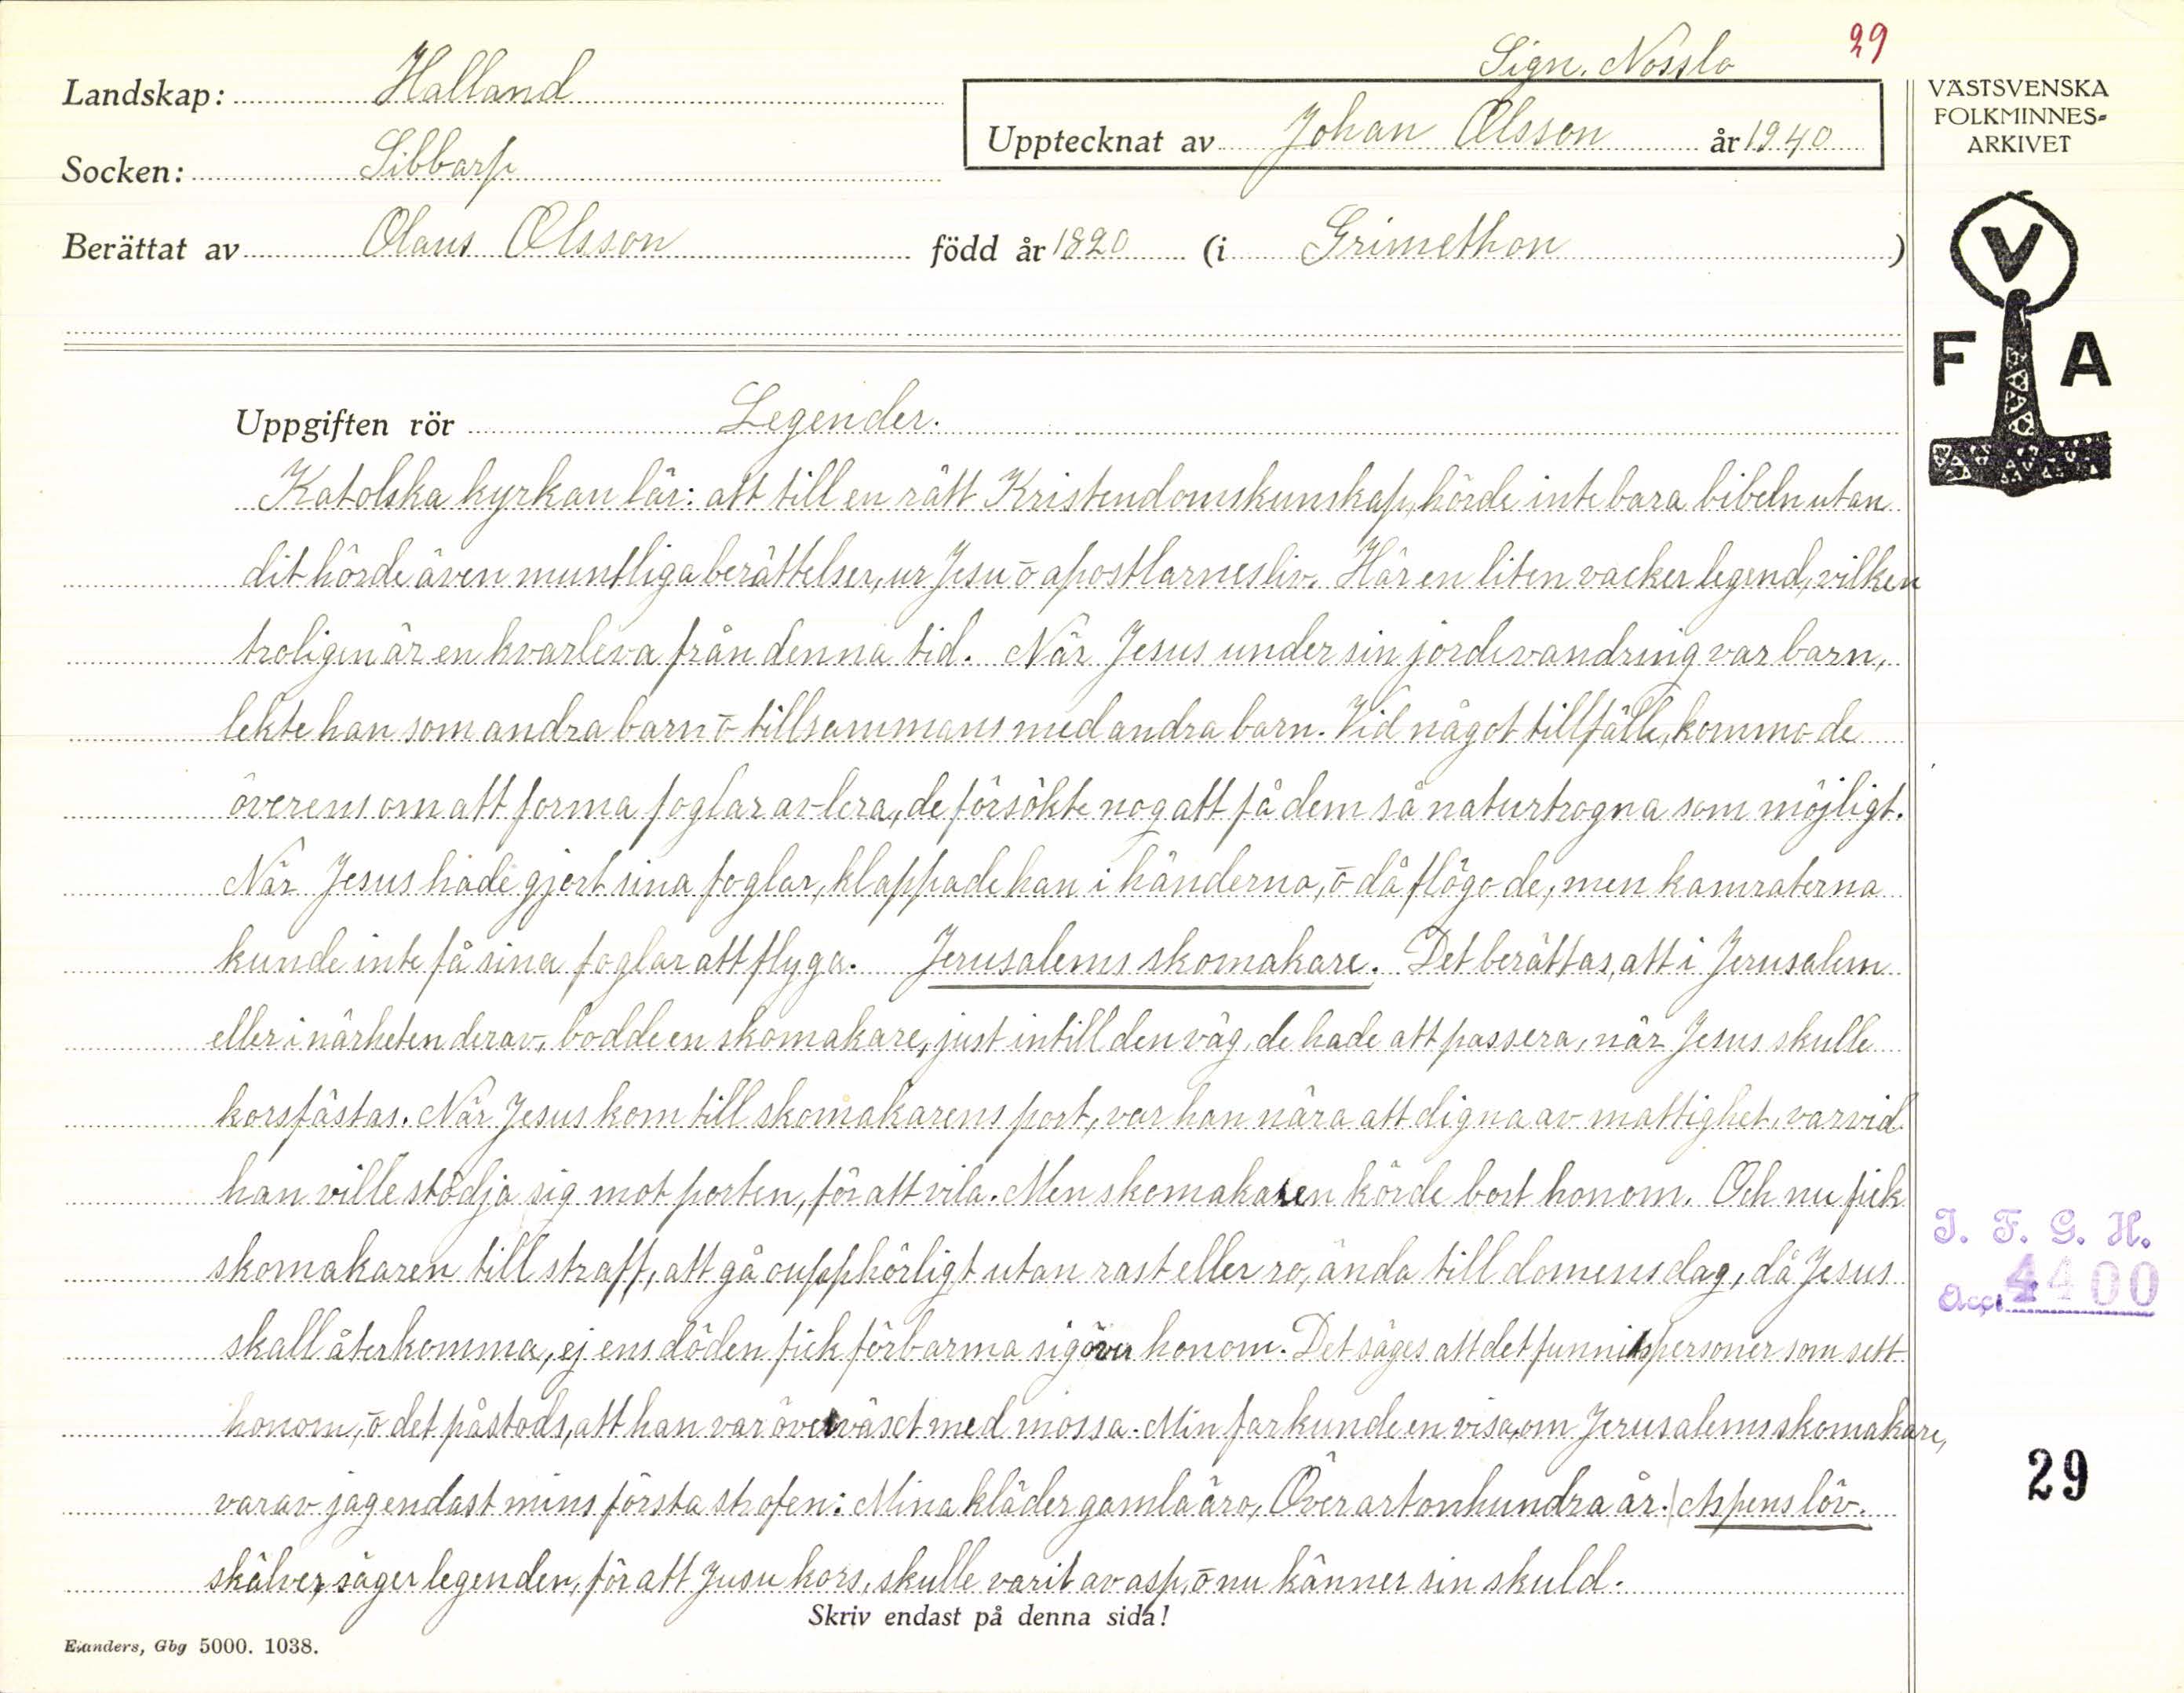 Sign. Nosslo 29
Landskap: Halland
Upptecknat av Johan Olsson år 1940
Socken: Sibbarp
Berättat av Olaus Olsson född år 1820 (i Grimethon )
VÄSTSVENSKA
FOLKMINNES=
ARKIVET
V
F A
Uppgiften rör Legender.
Katolska kyrkan lär: att till en rätt Kristendomskunskap, hörde inte bara bibeln utan
dit hörde även muntliga berättelser, ur Jesu o apostlarnes liv. Här en liten vacker legend, vilken
troligen är en kvarleva från denna tid. När Jesus under sin jordevandring var barn,
lekte han som andra barn o tillsammans med andra barn. Vid något tillfälle, kommo de
överens om att forma foglar av lera, de försökte nog att få dem så naturtrogna som möjligt.
När Jesus hade gjort sina foglar, klappade han i händerna, o då flögo de, men kamraterna
kunde inte få sina foglar att flyga. Jerusalems skomakare. Det berättas, att i Jerusalem
eller i närheten derav, bodde en skomakare, just intill den väg, de hade att passera, när Jesus skulle
korsfästas. När Jesus kom till skomakarens port, var han nära att digna av mattighet, varvid
han ville stödja sig mot porten, för att vila. Men skomakaren körde bort honom. Och nu fick
skomakaren till straff, att gå oupphörligt utan rast eller ro, ända till domens dag, då Jesus
skall återkomma, ej ens döden fick förbarma sig över honom. Det säges att det funnits personer som sett
honom, o det påstods, att han var överväxt med mossa. Min far kunde en visa, om Jerusalems skomakare,
varav jag endast mins första strofen: Mina kläder gamla äro, Över artonhundra år. | Aspens löv.
skälver, säger legenden, för att Jesu kors, skulle varit av asp, o nu känner sin skuld.
Skriv endast på denna sida!
Elanders, Gbg 5000. 1038.
I. F. G. H.
Acc. 4400
29